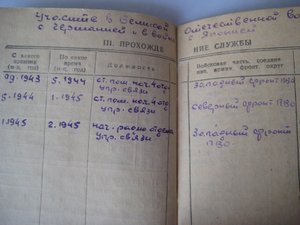 Участие в Великой Отечественной во
с Германией и в войне с Японией
III. ПРОХОЖДЕ НИЕ СЛУЖБЫ
С какого времени (м-ц, год)
По какое время (м-ц, год)
Должность
Войсковая часть, соедине ние, армия, фронт, округ
1943 5.1944 ст. пом. нач. 4 отд. Западный фронт
упр. связи ГВО.
5.1944 1.1945 ст. пом. нач. 4 отд. Северный фронт ПВО
упр. связи
1.1945 2.1945 нач. радио отдела Западный фронт
Упр. связи ПВО.